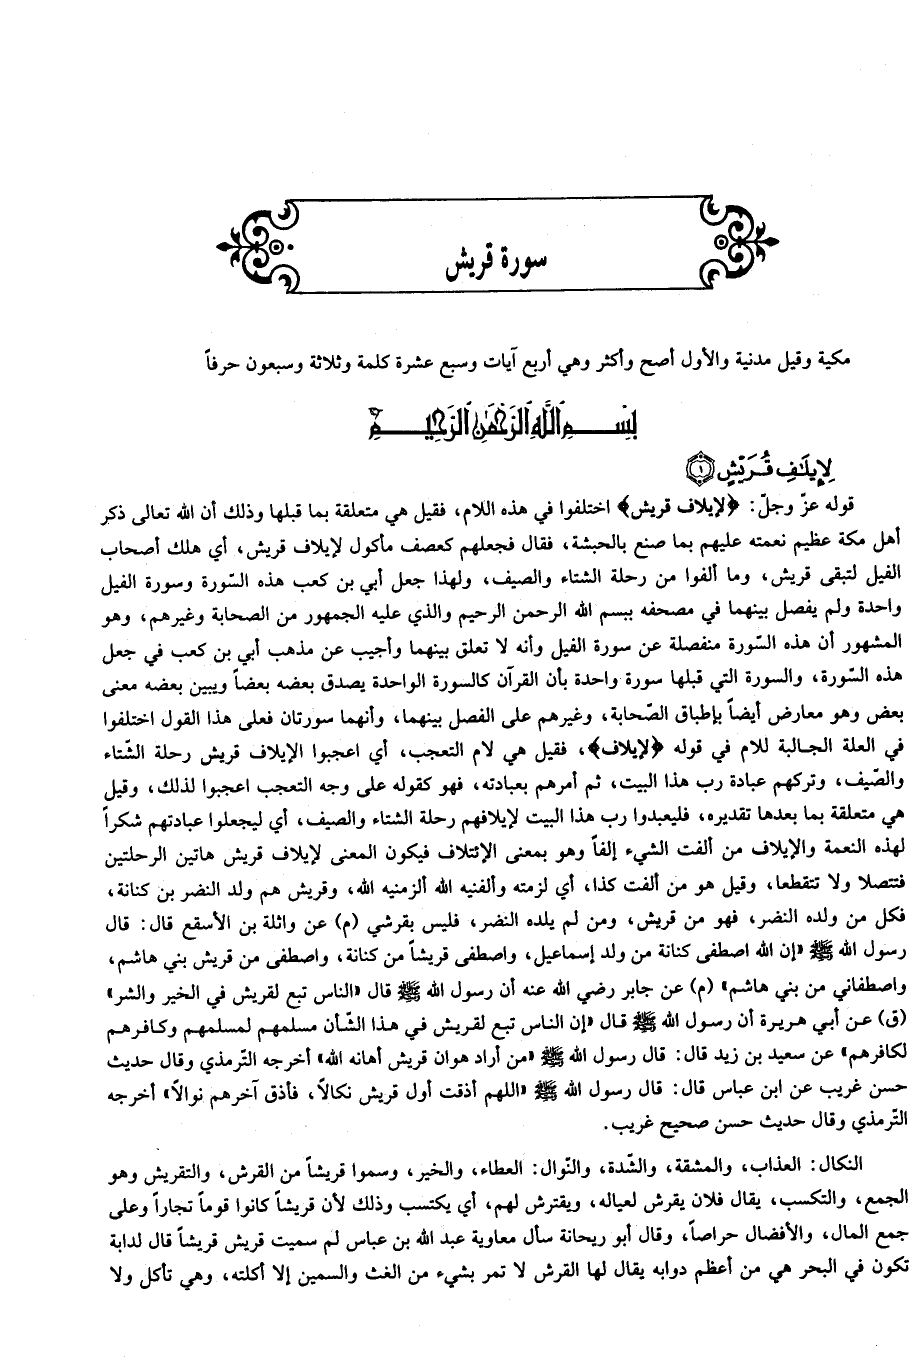 سورة قريش
مكية وقيل مدنية والأول أصح وأكثر وهي أربع آيات وسبع عشرة كلمة وثلاثة وسبعون حرفاً
بِسْمِ ٱللَّهِ ٱلرَّحْمَٰنِ ٱلرَّحِيمِ
لِإِيلَٰفِ قُرَيْشٍ ١
قوله عزّ وجلّ: ﴿لإيلاف قريش﴾ اختلفوا في هذه اللام، فقيل هي متعلقة بما قبلها وذلك أن الله تعالى ذكر
أهل مكة عظيم نعمته عليهم بما صنع بالحبشة، فقال فجعلهم كعصف مأكول لإيلاف قريش، أي هلك أصحاب
الفيل لتبقى قريش، وما ألفوا من رحلة الشتاء والصيف، ولهذا جعل أبي بن كعب هذه السّورة وسورة الفيل
واحدة ولم يفصل بينهما في مصحفه ببسم الله الرحمن الرحيم والذي عليه الجمهور من الصحابة وغيرهم، وهو
المشهور أن هذه السّورة منفصلة عن سورة الفيل وأنه لا تعلق بينهما وأجيب عن مذهب أبي بن كعب في جعل
هذه السّورة، والسورة التي قبلها سورة واحدة بأن القرآن كالسورة الواحدة يصدق بعضه بعضاً ويبين بعضه معنى
بعض وهو معارض أيضاً بإطباق الصّحابة، وغيرهم على الفصل بينهما، وأنهما سورتان فعلى هذا القول اختلفوا
في العلة الجالبة للام في قوله ﴿لإيلاف﴾، فقيل هي لام التعجب، أي اعجبوا الإيلاف قريش رحلة الشّتاء
والصّيف، وتركهم عبادة رب هذا البيت، ثم أمرهم بعبادته، فهو كقوله على وجه التعجب اعجبوا لذلك، وقيل
هي متعلقة بما بعدها تقديره، فليعبدوا رب هذا البيت لإيلافهم رحلة الشتاء والصيف، أي ليجعلوا عبادتهم شكراً
لهذه النعمة والإيلاف من ألفت الشيء إلفاً وهو بمعنى الإئتلاف فيكون المعنى لإيلاف قريش هاتين الرحلتين
فتتصلا ولا تتقطعا، وقيل هو من ألفت كذا، أي لزمته وألفنيه الله ألزمنيه الله، وقريش هم ولد النضر بن كنانة،
فكل من ولده النضر، فهو من قريش، ومن لم يلده النضر، فليس بقرشي (م) عن واثلة بن الأسقع قال: قال
رسول الله ﷺ «إن الله اصطفى كنانة من ولد إسماعيل، واصطفى قريشاً من كنانة، واصطفى من قريش بني هاشم،
واصطفاني من بني هاشم» (م) عن جابر رضي الله عنه أن رسول الله ﷺ قال «الناس تبع لقريش في الخير والشر»
(ق) عن أبي هريرة أن رسول الله ﷺ قال «إن الناس تبع لقريش في هذا الشّأن مسلمهم لمسلمهم وكافرهم
لكافرهم» عن سعيد بن زيد قال: قال رسول الله ﷺ «من أراد هوان قريش أهانه الله» أخرجه التّرمذي وقال حديث
حسن غريب عن ابن عباس قال: قال رسول الله ﷺ «اللهم أذقت أول قريش نكالاً، فأذق آخرهم نوالاً» أخرجه
التّرمذي وقال حديث حسن صحيح غريب.
النكال: العذاب، والمشقة، والشّدة، والنّوال: العطاء، والخير، وسموا قريشاً من القرش، والتقريش وهو
الجمع، والتكسب، يقال فلان يقرش لعياله، ويقترش لهم، أي يكتسب وذلك لأن قريشاً كانوا قوماً تجاراً وعلى
جمع المال، والأفضال حراصاً، وقال أبو ريحانة سأل معاوية عبد الله بن عباس لم سميت قريش قريشاً قال لدابة
تكون في البحر هي من أعظم دوابه يقال لها القرش لا تمر بشيء من الغث والسمين إلا أكلته، وهي تأكل ولا